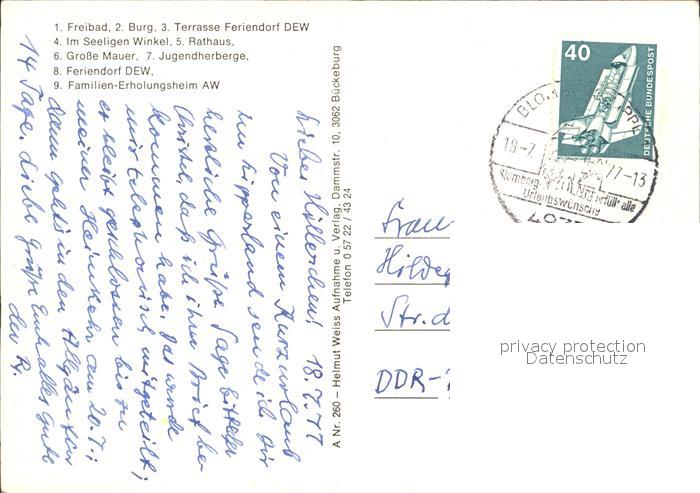 1. Freibad, 2. Burg, 3. Terrasse Feriendorf DEW
4. Im Seeligen Winkel, 5. Rathaus,
6. Große Mauer, 7. Jugendherberge,
8. Feriendorf DEW,
9. Familien-Erholungsheim AW
18.7.77
Liebes Hillerchen!
Von einem Kurzurlaub
im Lipperland sende ich Dir
herzliche Grüße. Sage bitte
daß ich ihren Brief be-
kommen habe. Es wurde
mir telephonisch mitgeteilt;
er bleibt geschlossen bis zu
meiner Heimkehr am 20.7.;
dann geht's in den Allgäu für
14 Tage. Liebe Grüße alles Gute
A Nr. 260 – Helmut Weiss Aufnahme u. Verlag, Dammstr. 10, 3062 Bückeburg
Telefon 0 57 22 / 43 24
40
DEUTSCHE BUNDESPOST
BLO
18-7
77-13
erfüllt alle
Urlaubswünsche
Frau
Hildeg
Str. d
DDR-
privacy protection
Datenschutz